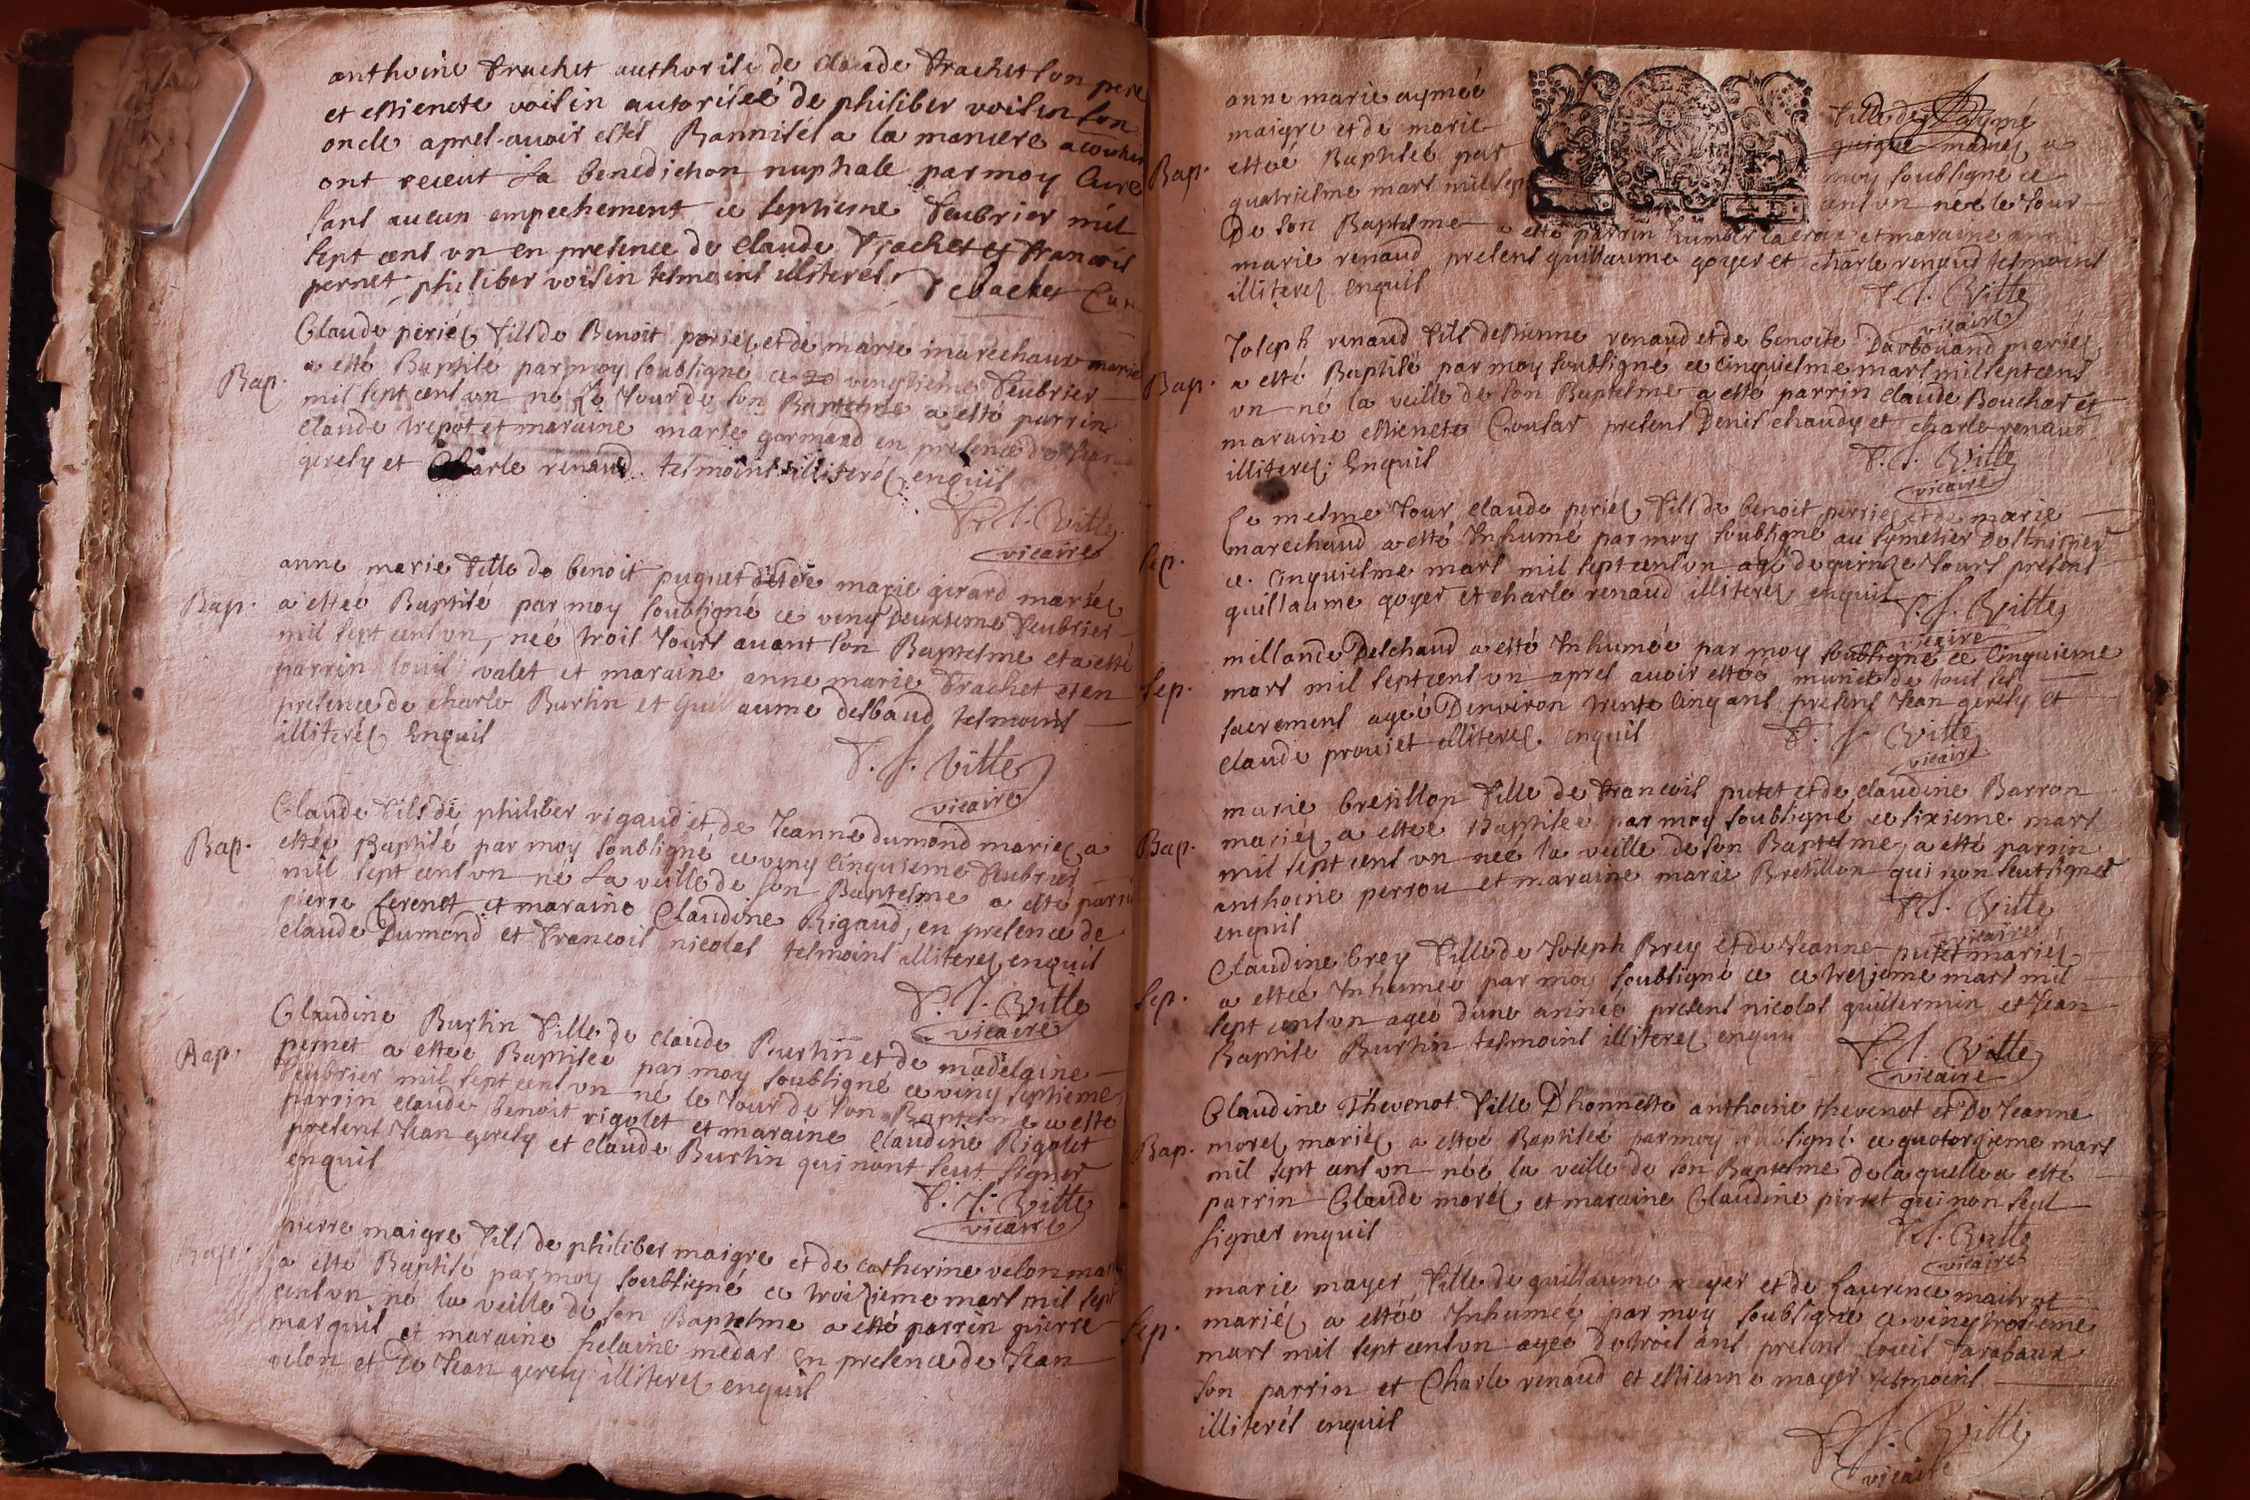 anthoine Frachet authorisé de claude Frachet son pere
et estienete voisin autorisée de philiber voisin son
oncle apres avoir estés Bannisés a la maniere acoutu
ont receut La benediction nuptiale par moy Curé
sans aucun empechement ce septieme feubrier mil
sept cens un en presence de claude Frachet et francois
pernet philiber voisin tesmoins illiterés
Claude periés fils de Benoit periés et de marie marechaux mariés
Bap. a esté Baptisé par moy soubsigné ce vingtiéme feubrier
mil sept cens un né le Jour de son Baptesme a esté parrin
claude trepot et maraine marie gormand en presence de Jean
gerely et Charle renaud tesmoins illiterés enquis
F. J. Ville
vicaire
anne marie fille de benoit puguet et de marie girard mariés
Bap. a estée Baptisé par moy soubsigné ce vingt deuxieme feubrier
mil sept cens un, née trois Jours avant son Baptesme et a esté
parrin louis valet et maraine anne marie Frachet et en
presence de charle Burtin et guillaume desbaud tesmoins
illiterés Enquis
F. J. Ville
vicaire
Claude fils de philiber rigaud et de Jeanne dumond mariés a
Bap. estée Baptisé par moy soubsigné ce vingt cinquieme feubrier
mil sept cens un né La veille de son Baptesme a esté parrin
pierre ferenet et maraine Claudine Rigaud, en presence de
claude Dumond et francois nicolas tesmoins illiterés enquis
F. J. Ville
vicaire
Claudine Burtin fille de claude Burtin et de madelaine
Bap. pernet a estée Baptisée par moy soubsigné ce vingt septieme
feubrier mil sept cens un né le Jour de son Baptesme a esté
parrin claude benoit rigolet et maraine Claudine Rigolet
present Jean gerely et claude Burtin qui nont seut signer
enquis
F. J. Ville
vicaire
pierre maigre fils de philiber maigre et de catherine velon ma
Bap. a esté Baptisé par moy soubsigné ce troisieme mars mil sept
cens un né la veille de son Baptesme a esté parrin pierre
marquis et maraine helaine medas en presence de Jean
velon et de Jean gerely illiterés enquis
anne marie aymée fille de
maigre et de marie mariés a
Bap. estée Baptisée par moy soubsigné ce
quatriesme mars mil sept cens un née le Jour
De son Baptesme a esté parrin humber lacroix et maraine
marie renaud presens guillaume goyer et charle renaud tesmoins
illiterés enquis
F. J. Ville
vicaire
Joseph renaud fils destienne renaud et de benoite Darbouand mariés
Bap. a esté Baptisé par moy soubsigné ce cinquiesme mars mil sept cens
un né la veille de son Baptesme a esté parrin claude Bouchar et
maraine estienete Coutar presens Denis chaudy et charle renaud
illiterés Enquis
F. J. Ville
vicaire
Le mesme Jour claude periés fils de benoit perriés et de marie
Sep. marechaud a esté Inhumé par moy soubsigné au symetier
ce cinquiesme mars mil sept cens un agé de quinze Jours presens
guillaume goyer et charle renaud illiterés enquis
F. J. Ville
vicaire
millande Delchaud a esté Inhumée par moy soubsigné ce cinquieme
Sep. mars mil sept cens un apres avoir estée munie de tout ses
sacremens agée Denviron trente cinq ans presens Jean gerely et
claude prouset illiterés enquis
F. J. Ville
vicaire
marie bresillon fille de francois putet et de claudine Barron
Bap. mariés a estée Baptisée par moy soubsigné ce sixieme mars
mil sept cens un née la veille de son Baptesme a esté parrin
anthoine perrou et maraine marie Bresillon qui non seut signer
enquis
F. J. Ville
vicaire
Claudine brey fille de Joseph Brey et de Jeanne putet mariés
Sep. a estée Inhumée par moy soubsigné ce ce tresieme mars mil
sept cens un agée dune année presens nicolas guillermin et Jean
Baptiste Burtin tesmoins illiterés enquis
F. J. Ville
vicaire
Claudine Thevenot fille D'honneste anthoine thevenot et De Jeanne
Bap. morel mariés a estée Baptisée par moy soubsigné ce quatorzieme mars
mil sept cens un née la veille de son Baptesme de laquelle a esté
parrin Claude morel et maraine Claudine pirret qui non seut
signer enquis
F. J. Ville
vicaire
marie mayer fille de guillaume mayer et de Laurence maitrot
Sep. mariés a estée Inhumée par moy soubsigné ce vingt troisieme
mars mil sept cens un agée de trois ans presens louis Farabaux
son parrin et Charle renaud et estienne mayer tesmoins
illiterés enquis
F. J. Ville
vicaire